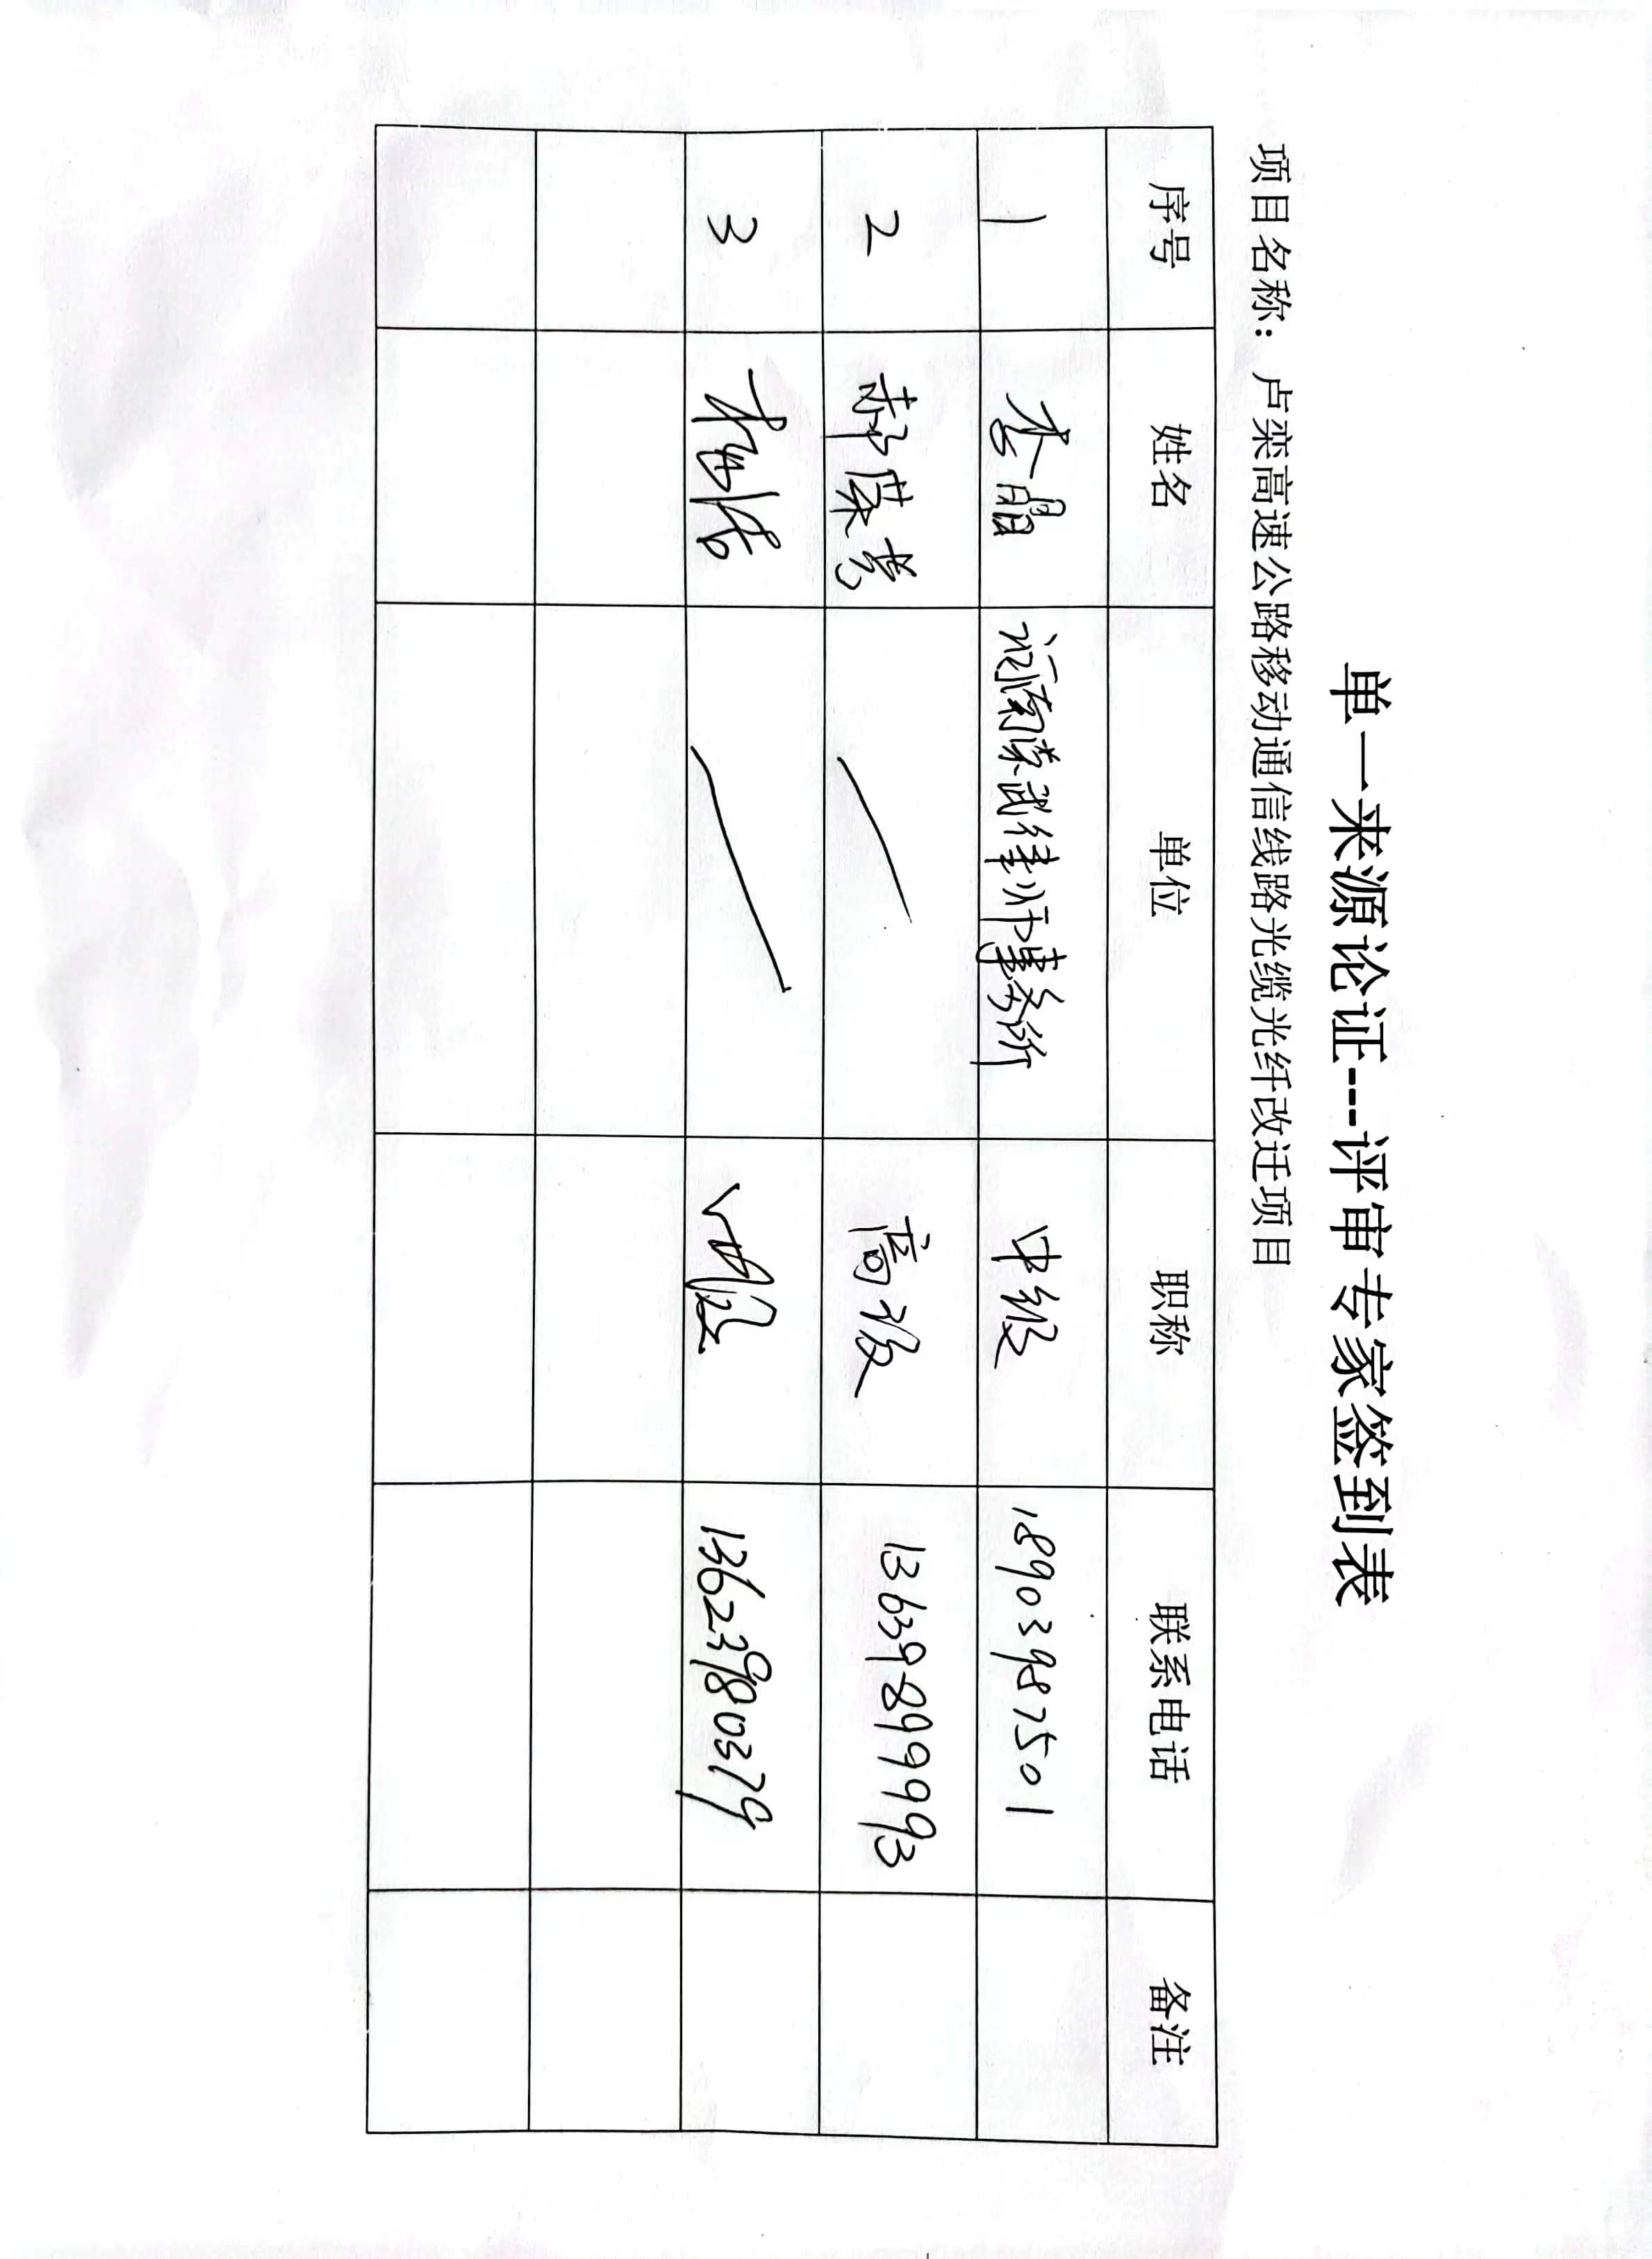 单一来源论证---评审专家签到表
项目名称：卢栾高速公路移动通信线路光缆光纤改迁项目
序号 姓名 单位 职称 联系电话 备注
1 李晶 河南崇武律师事务所 中级 18903987501
2 郝 高级 13639899993
3 13623980379